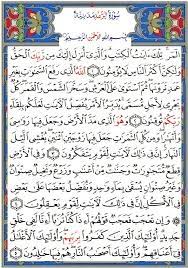 سُورَةُ الرَّعْدِ مَدَنِيَّة
بِسْمِ اللَّهِ الرَّحْمَٰنِ الرَّحِيمِ
الٓمٓر ۚ تِلْكَ ءَايَٰتُ الْكِتَٰبِ ۗ وَالَّذِىٓ أُنزِلَ إِلَيْكَ مِن رَّبِّكَ الْحَقُّ
وَلَٰكِنَّ أَكْثَرَ النَّاسِ لَا يُؤْمِنُونَ ١ اللَّهُ الَّذِى رَفَعَ السَّمَٰوَٰتِ بِغَيْرِ
عَمَدٍ تَرَوْنَهَا ۖ ثُمَّ اسْتَوَىٰ عَلَى الْعَرْشِ ۖ وَسَخَّرَ الشَّمْسَ وَالْقَمَرَ ۖ كُلٌّ
يَجْرِى لِأَجَلٍ مُّسَمًّى ۚ يُدَبِّرُ الْأَمْرَ يُفَصِّلُ الْءَايَٰتِ لَعَلَّكُم بِلِقَآءِ
رَبِّكُمْ تُوقِنُونَ ٢ وَهُوَ الَّذِى مَدَّ الْأَرْضَ وَجَعَلَ فِيهَا رَوَٰسِىَ
وَأَنْهَٰرًا ۖ وَمِن كُلِّ الثَّمَرَٰتِ جَعَلَ فِيهَا زَوْجَيْنِ اثْنَيْنِ ۖ يُغْشِى الَّيْلَ
النَّهَارَ ۚ إِنَّ فِى ذَٰلِكَ لَءَايَٰتٍ لِّقَوْمٍ يَتَفَكَّرُونَ ٣ وَفِى الْأَرْضِ
قِطَعٌ مُّتَجَٰوِرَٰتٌ وَجَنَّٰتٌ مِّنْ أَعْنَٰبٍ وَزَرْعٌ وَنَخِيلٌ صِنْوَانٌ
وَغَيْرُ صِنْوَانٍ يُسْقَىٰ بِمَآءٍ وَٰحِدٍ وَنُفَضِّلُ بَعْضَهَا عَلَىٰ بَعْضٍ
فِى الْأُكُلِ ۚ إِنَّ فِى ذَٰلِكَ لَءَايَٰتٍ لِّقَوْمٍ يَعْقِلُونَ ٤
وَإِن تَعْجَبْ فَعَجَبٌ قَوْلُهُمْ أَءِذَا كُنَّا تُرَٰبًا أَءِنَّا لَفِى خَلْقٍ
جَدِيدٍ ۗ أُو۟لَٰٓئِكَ الَّذِينَ كَفَرُوا۟ بِرَبِّهِمْ ۖ وَأُو۟لَٰٓئِكَ الْأَغْلَٰلُ
فِىٓ أَعْنَاقِهِمْ ۖ وَأُو۟لَٰٓئِكَ أَصْحَٰبُ النَّارِ ۖ هُمْ فِيهَا خَٰلِدُونَ ٥